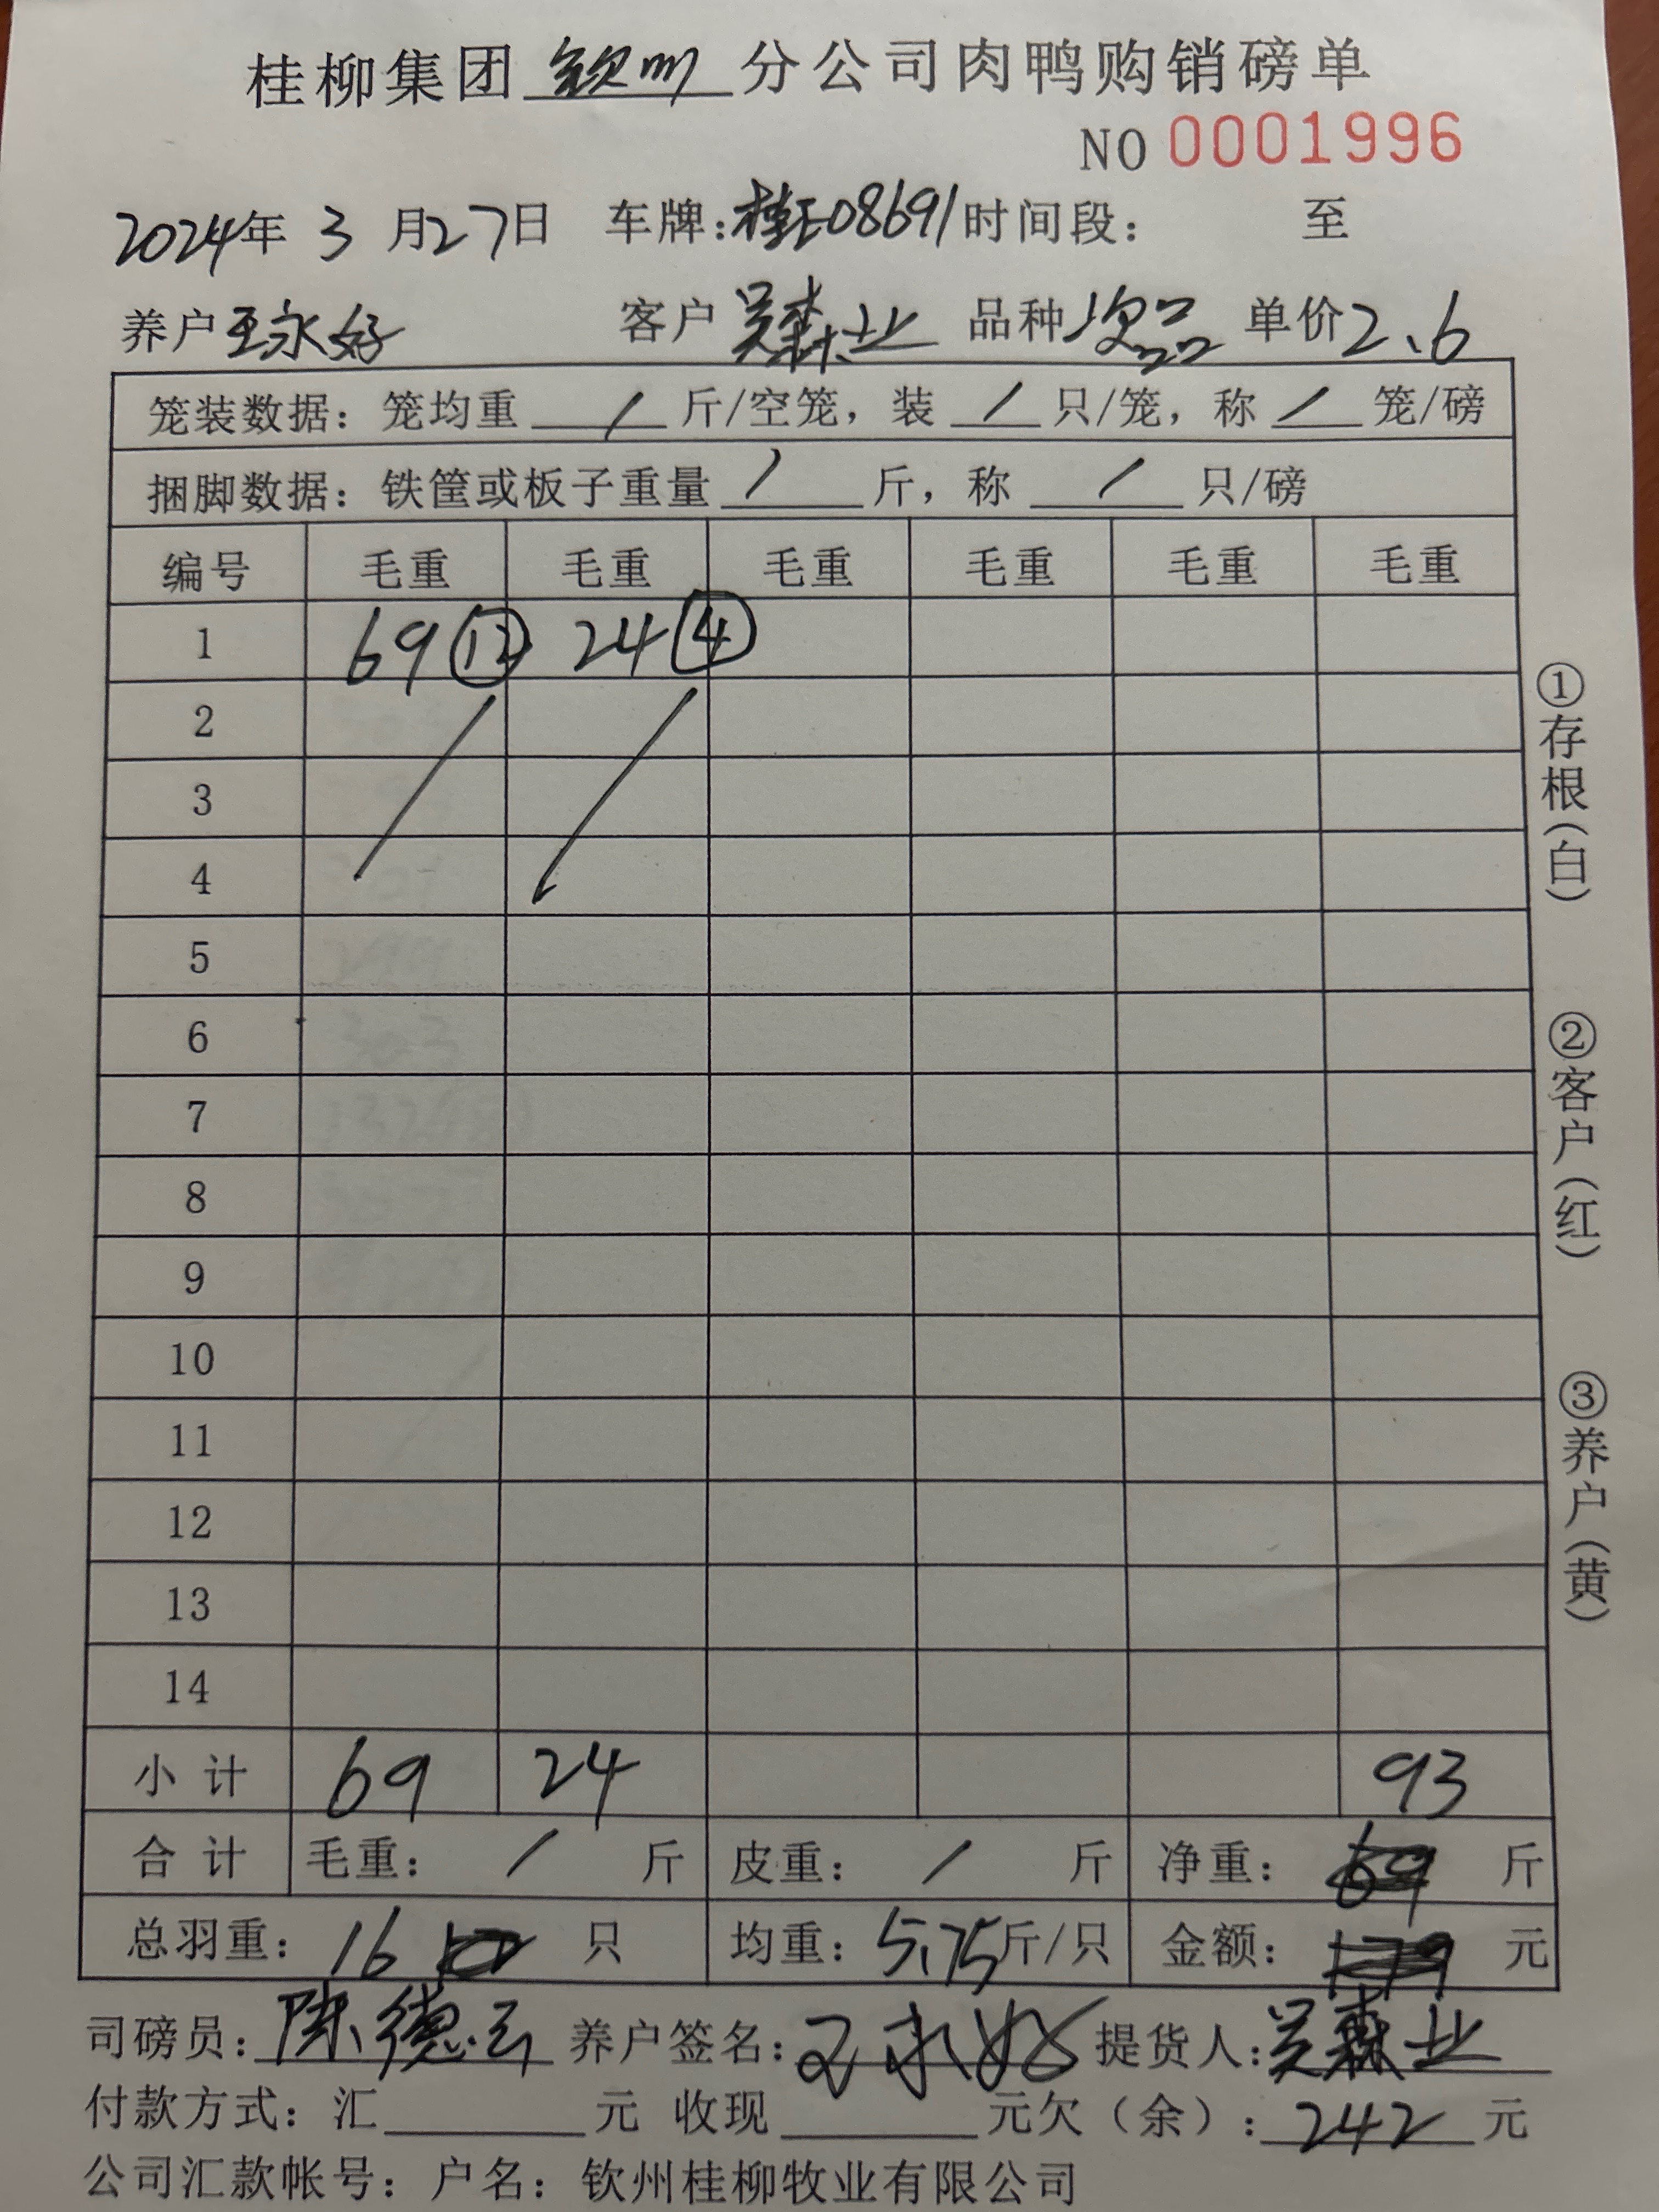 桂柳集团 钦州 分公司肉鸭购销磅单
NO 0001996
2024年 3 月27日 车牌：桂E08691 时间段： 至
养户 王永好 客户 吴森业 品种 次品 单价 2.6
笼装数据：笼均重 / 斤/空笼，装 / 只/笼，称 / 笼/磅
捆脚数据：铁筐或板子重量 / 斤，称 / 只/磅
编号 毛重 毛重 毛重 毛重 毛重 毛重
1 69 ⑫ 24 ④
2
3
4
5
6
7
8
9
10
11
12
13
14
小计 69 24 93
合计 毛重： / 斤 皮重： / 斤 净重： 69 斤
总羽重： 16 只 均重： 5.75 斤/只 金额： 179 元
司磅员： 陈德云 养户签名： 王永好 提货人： 吴森业
付款方式：汇 元 收现 元欠（余）： 242 元
公司汇款帐号：户名：钦州桂柳牧业有限公司
①存根（白）
②客户（红）
③养户（黄）